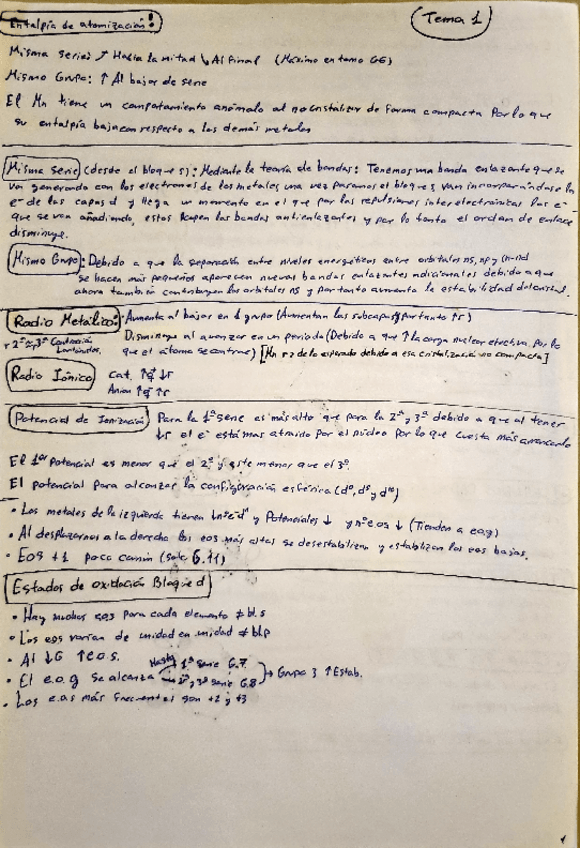 Entalpía de atomización!
Tema 1
Misma serie: ↗ Hacia la mitad ↘ Al final (Máximo en torno G6)
Mismo Grupo: ↑ Al bajar de serie
El Mn tiene un comportamiento anómalo al no cristalizar de forma compacta por lo que
su entalpía baja con respecto a los demás metales
Misma serie (desde el bloque s): Mediante la teoría de bandas: Tenemos una banda enlazante que se
va generando con los electrones de los metales una vez pasamos el bloque s van incorporándose los
e⁻ de las capas d y llega un momento en el que por las repulsiones interelectrónicas los e⁻
que se van añadiendo, estos ocupen las bandas antienlazantes y por lo tanto el orden de enlace
disminuye.
Mismo Grupo: Debido a que la separación entre niveles energéticos entre orbitales ns, np y (n-1)d
se hacen más pequeños aparecen nuevas bandas enlazantes adicionales debido a que
ahora también contribuyen los orbitales ns y por tanto aumenta la estabilidad del
Radio Metálico: Aumenta al bajar en el grupo (Aumentan las subcapas y por tanto ↑r)
r 2ª ≈ 3ª Contracción Lantánidos.
Disminuye al avanzar en un periodo (Debido a que ↑ la carga nuclear efectiva por lo
que el átomo se contrae) [Mn r > de lo esperado debido a esa cristalización no compacta]
Radio Iónico
Cat. ↑q ↓r
Anion ↑q ↑r
Potencial de Ionización
Para la 1ª serie es más alto que para la 2ª y 3ª debido a que al tener
↓r el e⁻ está mas atraido por el núcleo por lo que cuesta más arrancarlo
El 1er Potencial es menor que el 2º y este menor que el 3º.
El potencial para alcanzar la configuración esférica (d⁰, d⁵ y d¹⁰)
• Los metales de la izquierda tienen ↓nº e⁻ d y Potenciales ↓ y nº e.os ↓ (Tienden a e.o.g)
• Al desplazarnos a la derecha los eos más altos se desestabilizan y estabilizan los eos bajos.
• Eos +1 poco común (solo G.11)
Estados de oxidación Bloque d
• Hay muchos eos para cada elemento ≠ bl.s
• Los eos varían de unidad en unidad ≠ bl.p
• Al ↓G ↑e.o.s.
• El e.o.g se alcanza Hasta 1ª serie G.7
2ª y 3ª serie G.8 → Grupo 3 ↑Estab.
• Los e.os más frecuentes son +2 y +3
1